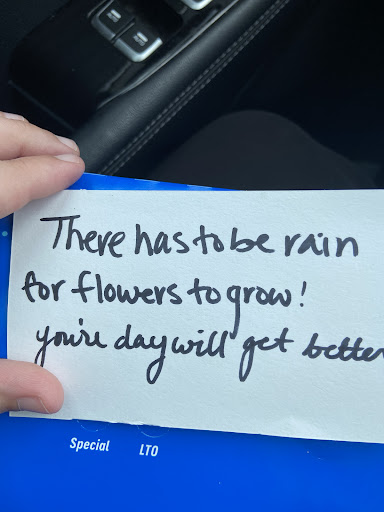 There has to be rain
for flowers to grow!
you're day will get better
Special LTO